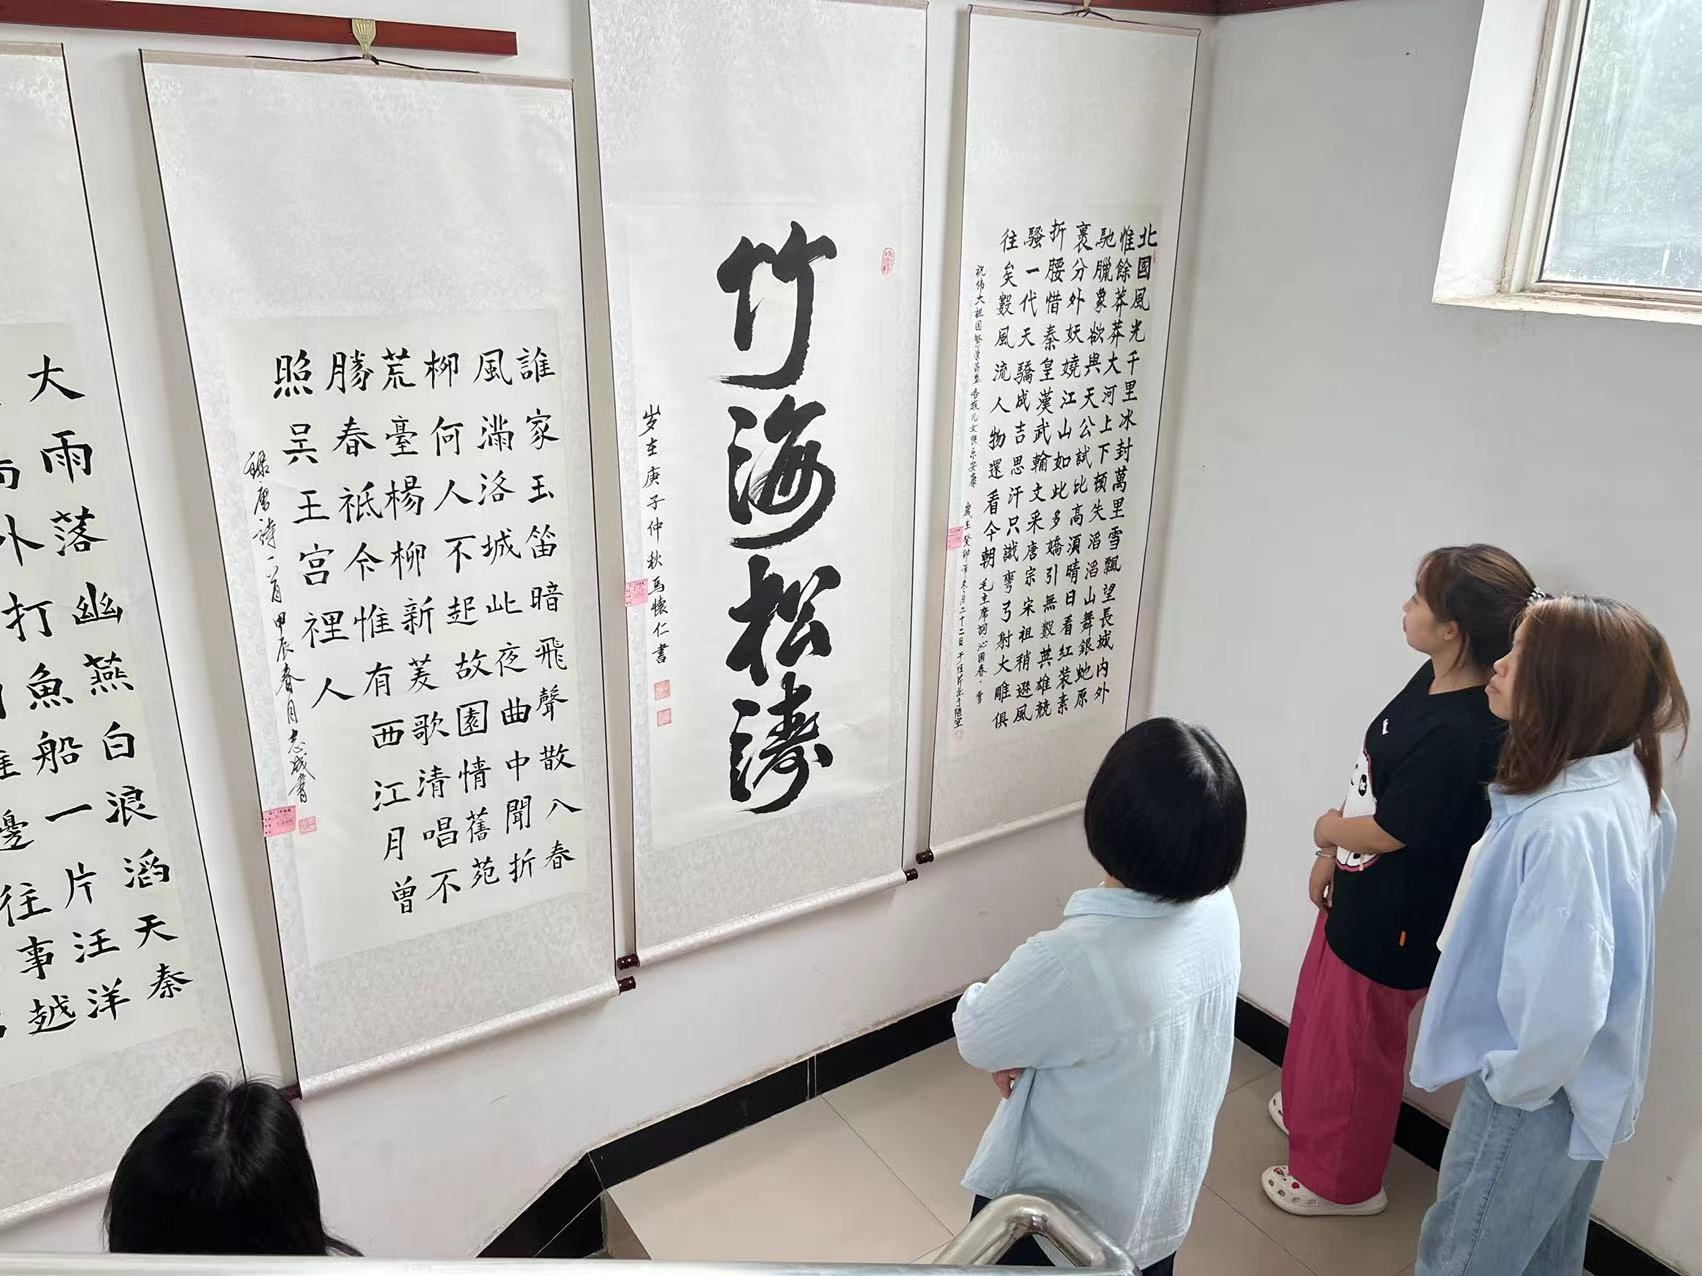 北國風光千里冰封萬里雪飄望長城内外
惟餘莽莽大河上下頓失滔滔山舞銀蛇原
馳臘象欲與天公試比高須晴日看紅裝素
裹分外妖嬈江山如此多嬌引無數英雄競
折腰惜秦皇漢武輸文采唐宗宋祖稍遜風
騷一代天驕成吉思汗只識彎弓射大雕俱
往矣數風流人物還看今朝 毛主席詞沁園春·雪
祝伟大祖国繁荣昌盛各族儿女快乐安康 歲在癸卯年冬月二十二日于
竹海松濤
岁在庚子仲秋馬懷仁書
誰家玉笛暗飛聲散入春
風滿洛城此夜曲中聞折
柳何人不起故園情舊苑
荒臺楊柳新菱歌清唱不
勝春祗今惟有西江月曾
照吴王宫裡人
錄唐詩二首甲辰春月志成書
大雨落幽燕白浪滔天秦
外打魚船一片汪洋
邊往事越